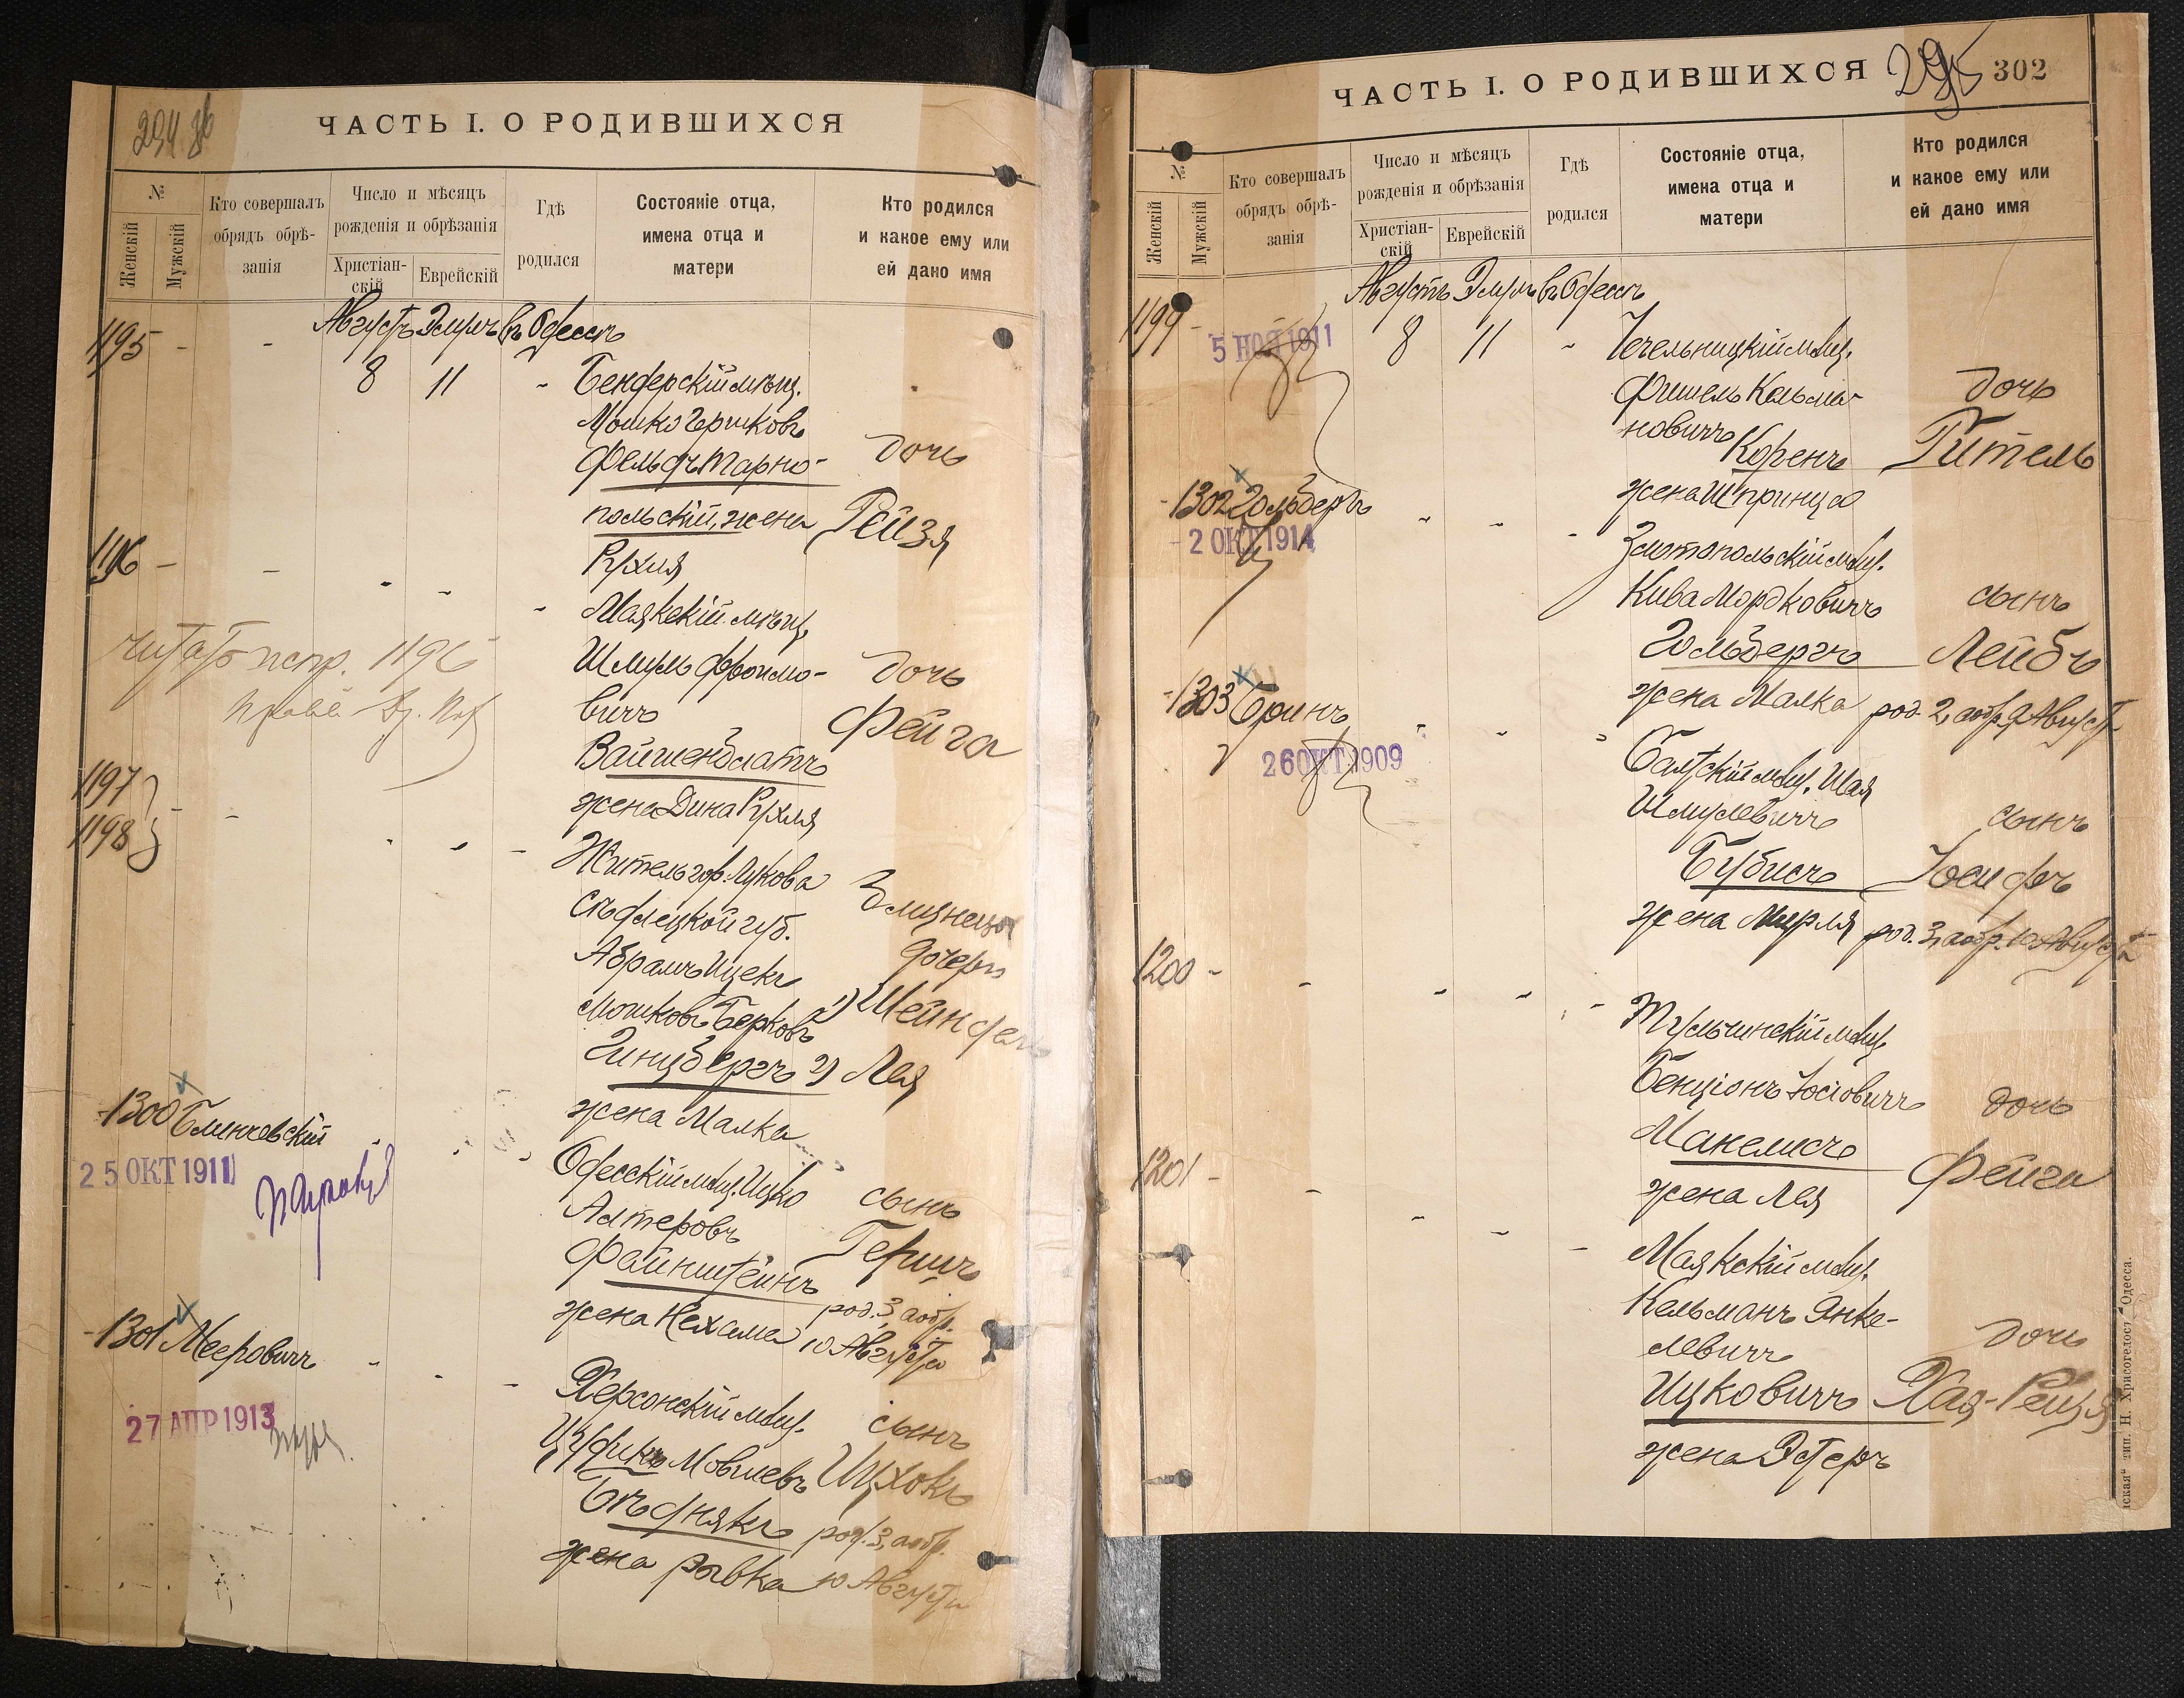 ЧАСТЬ I. О РОДИВШИХСЯ
№
Женскій
Мужскій
Кто совершалъ
обрядъ обрѣ-
занія
Число и мѣсяцъ
рожденія и обрѣзанія
Христіан-
скій
Еврейскій
Гдѣ
родился
Состояніе отца,
имена отца и
матери
Кто родился
и какое ему или
ей дано имя
Августъ Элулъ въ Одессѣ
1195 - -
8 11 - Бендерскій мѣщ.
Мошко Гершковъ
Фельдъ Тарно-
польскій, жена
Рухля
дочь
Рейзя
1196 - -
Маякскій мѣщ.
Шмуль Фроимо-
вичъ
Вайшенблатъ
жена Дина Рухля
дочь
Фейга
1196
1197
1198
Житель гор. Лукова
Сѣдлецкой губ.
Абрамъ Ицекъ
Мошковъ Берковъ
Гинцбергъ
жена Малка
Близнецы
дочери
1) Шейндель
2) Лея
-1300 Блинчевскій
25 ОКТ 1911
Одесскій мѣщ. Ицко
Алтеровъ
Файнштейнъ
жена Нехама
сынъ
Гершъ
род. 3, аобр.
10 Августа
-1301 Мееровичъ
27 АПР 1913
Херсонскій мѣщ.
Цудикъ Мовшевъ
Бѣднякъ
жена Рывка
сынъ
Ицхокъ
род. 3, аобр.
10 Августа
ЧАСТЬ I. О РОДИВШИХСЯ
295 302
№
Женскій
Мужскій
Кто совершалъ
обрядъ обрѣ-
занія
Число и мѣсяцъ
рожденія и обрѣзанія
Христіан-
скій
Еврейскій
Гдѣ
родился
Состояніе отца,
имена отца и
матери
Кто родился
и какое ему или
ей дано имя
Августъ Элулъ въ Одессѣ
1199 -
5 НОЯ 1911
8 11 - Чечельницкій мѣщ.
Фишель Кельма-
новичъ
Коренъ
жена Шпринца
дочь
Гитель
-1302 Гольберъ
-2 ОКТ 1914
Златопольскій мѣщ.
Кива Мордковичъ
Гольдбергъ
жена Малка
сынъ
Лейбъ
род. 2, аобр. 9 Августа
-1303 Бринъ
26 ОКТ 1909
Балтскій мѣщ. Шая
Шмулевичъ
Бубисъ
жена Мирля
сынъ
Іосифъ
род. 3, аобр. 10 Августа
1200 - -
Тульчинскій мѣщ.
Бенціонъ Іосіовичъ
Манелисъ
жена Лея
дочь
Фейга
1201 - -
Маякскій мѣщ.
Кельманъ Янке-
левичъ
Ицковичъ
жена Эстеръ
дочь
Хая-Рейзя
тип. Н. Хрисогелосъ Одесса.